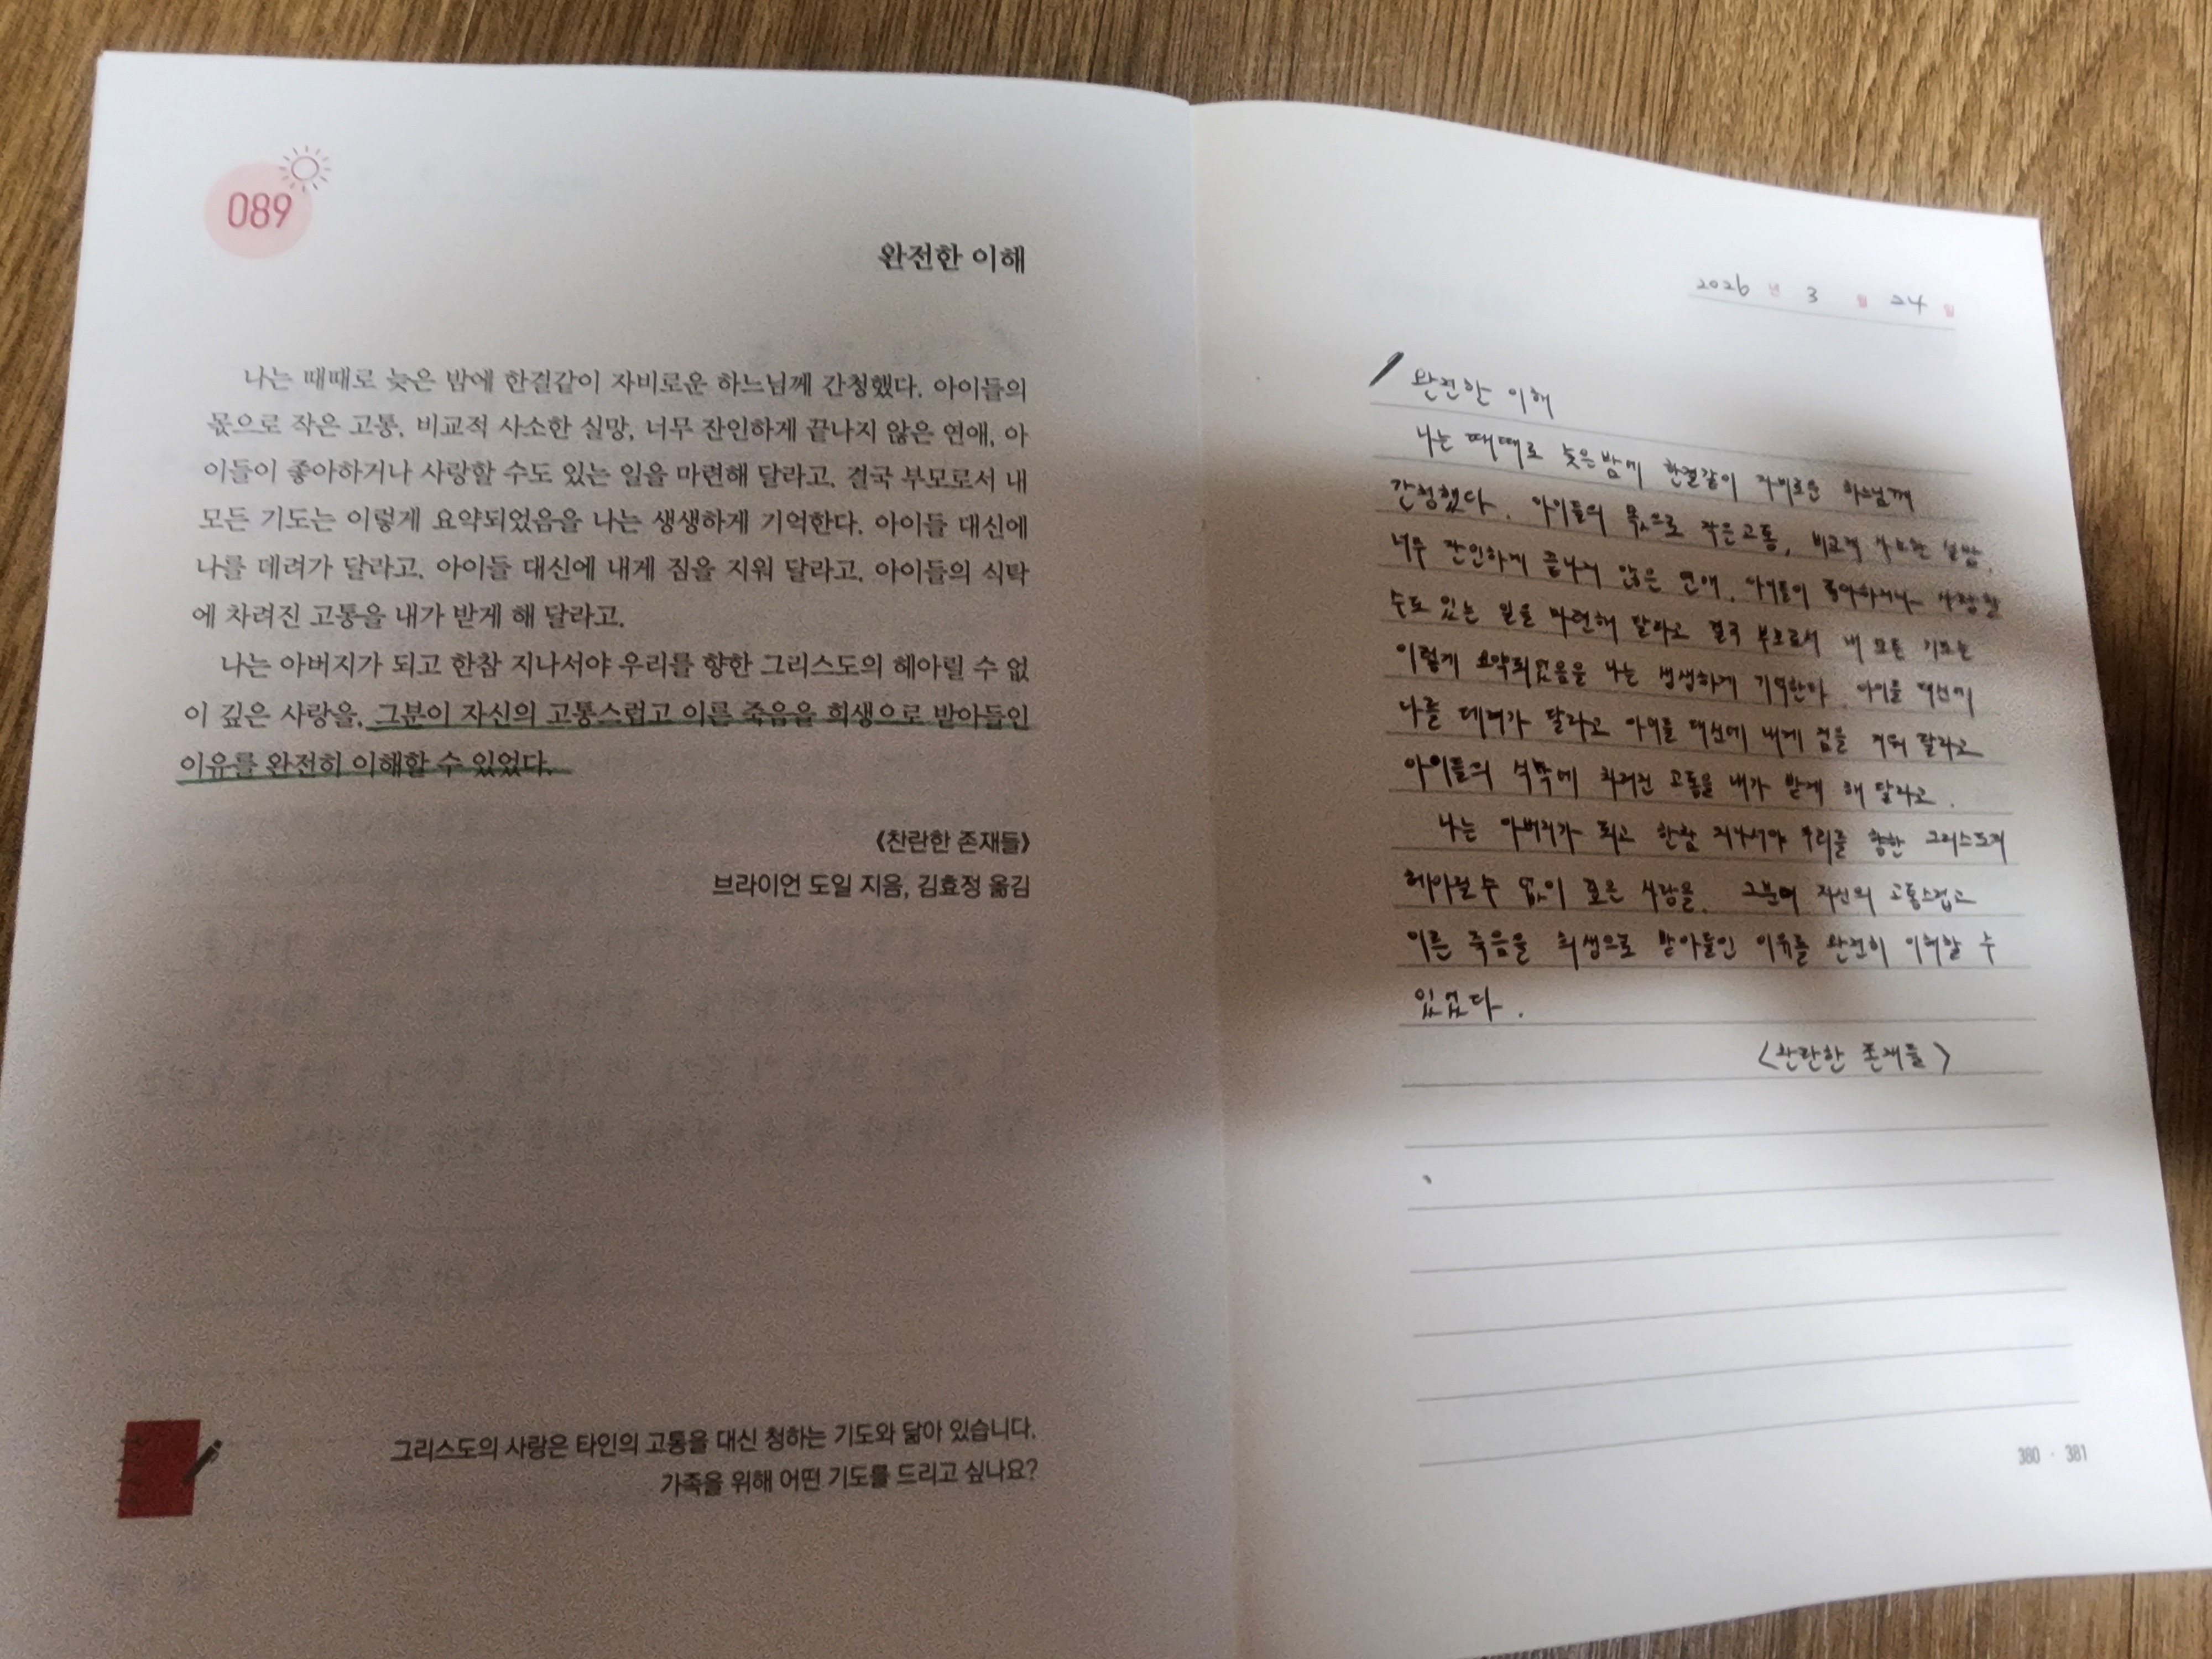 089
완전한 이해
나는 때때로 늦은 밤에 한결같이 자비로운 하느님께 간청했다. 아이들의
몫으로 작은 고통, 비교적 사소한 실망, 너무 잔인하게 끝나지 않은 연애, 아
이들이 좋아하거나 사랑할 수도 있는 일을 마련해 달라고. 결국 부모로서 내
모든 기도는 이렇게 요약되었음을 나는 생생하게 기억한다. 아이들 대신에
나를 데려가 달라고. 아이들 대신에 내게 짐을 지워 달라고. 아이들의 식탁
에 차려진 고통을 내가 받게 해 달라고.
나는 아버지가 되고 한참 지나서야 우리를 향한 그리스도의 헤아릴 수 없
이 깊은 사랑을, 그분이 자신의 고통스럽고 이른 죽음을 희생으로 받아들인
이유를 완전히 이해할 수 있었다.
《찬란한 존재들》
브라이언 도일 지음, 김효정 옮김
그리스도의 사랑은 타인의 고통을 대신 청하는 기도와 닮아 있습니다.
가족을 위해 어떤 기도를 드리고 싶나요?
2026 년 3 월 24 일
완전한 이해
나는 때때로 늦은 밤에 한결같이 자비로운 하느님께
간청했다. 아이들의 몫으로 작은 고통, 비교적 사소한 실망,
너무 잔인하게 끝나지 않은 연애, 아이들이 좋아하거나 사랑할
수도 있는 일을 마련해 달라고 결국 부모로서 내 모든 기도는
이렇게 요약되었음을 나는 생생하게 기억한다. 아이들 대신에
나를 데려가 달라고 아이들 대신에 내게 짐을 지워 달라고
아이들의 식탁에 차려진 고통을 내가 받게 해 달라고.
나는 아버지가 되고 한참 지나서야 우리를 향한 그리스도의
헤아릴 수 없이 깊은 사랑을, 그분이 자신의 고통스럽고
이른 죽음을 희생으로 받아들인 이유를 완전히 이해할 수
있었다.
<찬란한 존재들>
380 · 381